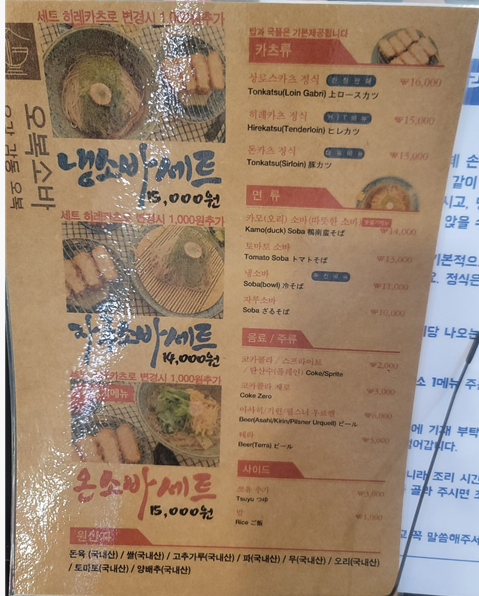 세트 히레카츠로 변경시 1,000원추가
냉소바세트
15,000원
세트 히레카츠로 변경시 1,000원추가
자루소바세트
14,000원
히레카츠로 변경시 1,000원추가
메뉴
온소바세트
15,000원
오복소바
밥과 국물은 기본제공됩니다
카츠류
상로스카츠 정식 ₩16,000
Tonkatsu(Loin Gabri) 上ロースカツ
히레카츠 정식 ₩15,000
Hirekatsu(Tenderloin) ヒレカツ
돈카츠 정식 ₩13,000
Tonkatsu(Sirloin) 豚カツ
면 류
카모(오리) 소바(따뜻한 소바) ₩14,000
Kamo(duck) Soba 鴨南蛮そば
토마토 소바 ₩13,000
Tomato Soba トマトそば
냉소바 ₩11,000
Soba(bowl) 冷そば
자루소바 ₩10,000
Soba ざるそば
음료 / 주류
코카콜라 / 스프라이트
/ 탄산수(플레인) Coke/Sprite ₩2,000
코카콜라 제로
Coke Zero
아사히/기린/필스너 우르켈
Beer(Asahi/Kirin/Pilsner Urquell) ビール
테라
Beer(Terra) ビール
사이드
쯔유 추가
Tsuyu つゆ
밥
Rice ご飯
원산지
돈육 (국내산) / 쌀(국내산) / 고추가루(국내산) / 파(국내산) / 무(국내산) / 오리(국내산)
/ 토마토(국내산) / 양배추(국내산)
같이
기본적으
정식은
나오는
소 1메뉴 주
에 기재 부탁
니라 조리 시간
골라 주시면
꼭 말씀해주세